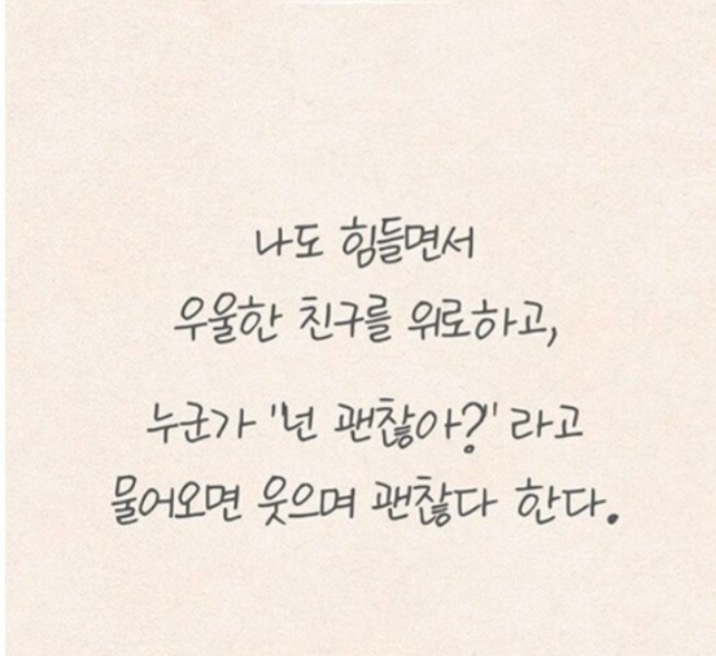 나도 힘들면서
우울한 친구를 위로하고,
누군가 "넌 괜찮아?" 라고
물어오면 웃으며 괜찮다 한다.